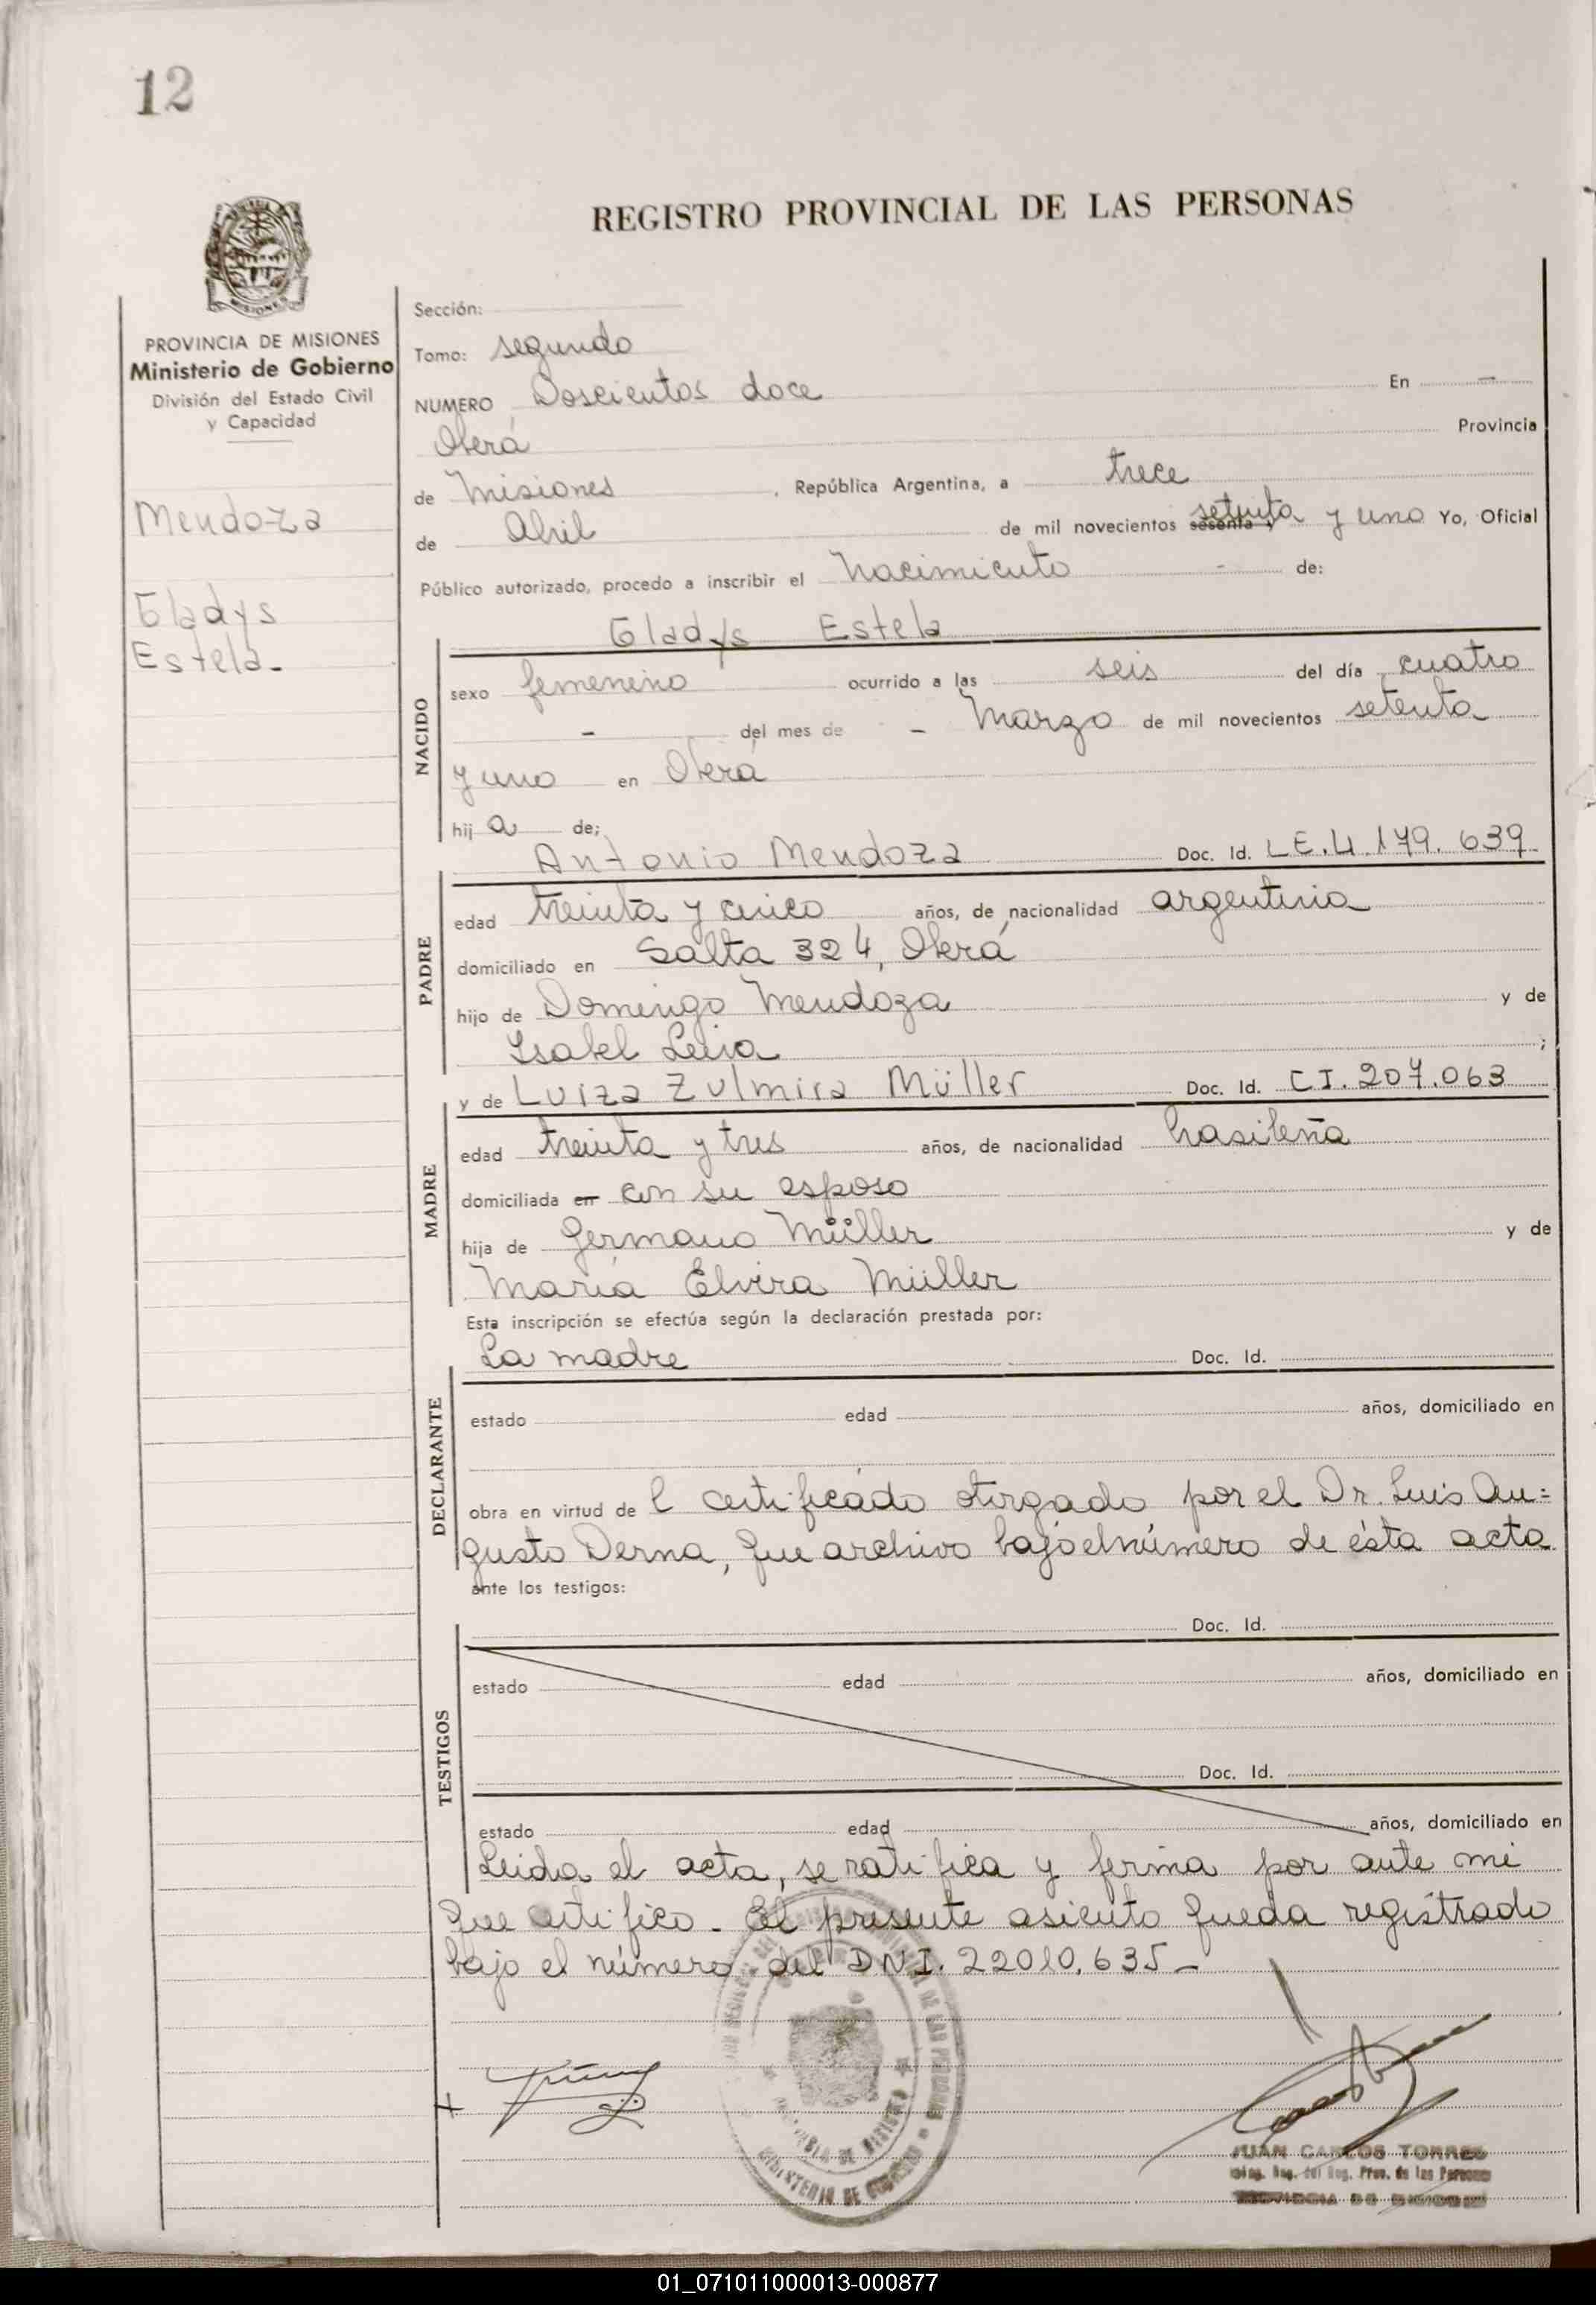 12
REGISTRO PROVINCIAL DE LAS PERSONAS
MISIONES
PROVINCIA DE MISIONES
Ministerio de Gobierno
División del Estado Civil
y Capacidad
Mendoza
Gladys
Estela.-
Sección:
Tomo: segundo
NUMERO Doscientos doce En —
Oberá Provincia
de Misiones, República Argentina, a trece
de Abril de mil novecientos sesenta setenta y uno Yo, Oficial
Público autorizado, procedo a inscribir el Nacimiento - de:
Gladys Estela
NACIDO
sexo femenino ocurrido a las seis del día cuatro
- del mes de - Marzo de mil novecientos setenta
y uno en Oberá
hij a de;
Antonio Mendoza Doc. Id. L.E.4.179.639
PADRE
edad treinta y cinco años, de nacionalidad argentina
domiciliado en Salta 324, Oberá
hijo de Domingo Mendoza y de
Isabel Leiva ;
y de Luiza Zulmira Müller Doc. Id. C.I. 207.063
MADRE
edad treinta y tres años, de nacionalidad brasileña
domiciliada en con su esposo
hija de Germano Müller y de
María Elvira Müller
Esta inscripción se efectúa según la declaración prestada por:
La madre Doc. Id.
DECLARANTE
estado edad años, domiciliado en
obra en virtud de l certificado otorgado por el Dr. Luis Au=
gusto Derna, que archivo bajo el número de ésta acta
ante los testigos:
Doc. Id.
TESTIGOS
estado edad años, domiciliado en
Doc. Id.
estado edad años, domiciliado en
Leida el acta, se ratifica y firma por ante mi
que certifico. El presente asiento queda registrado
bajo el número del DNI. 22010.635-
MINISTERIO DE GOBIERNO
JUAN CARLOS TORRES
Reg. Prov. de las Personas
PROVINCIA DE MISIONES
01_071011000013-000877